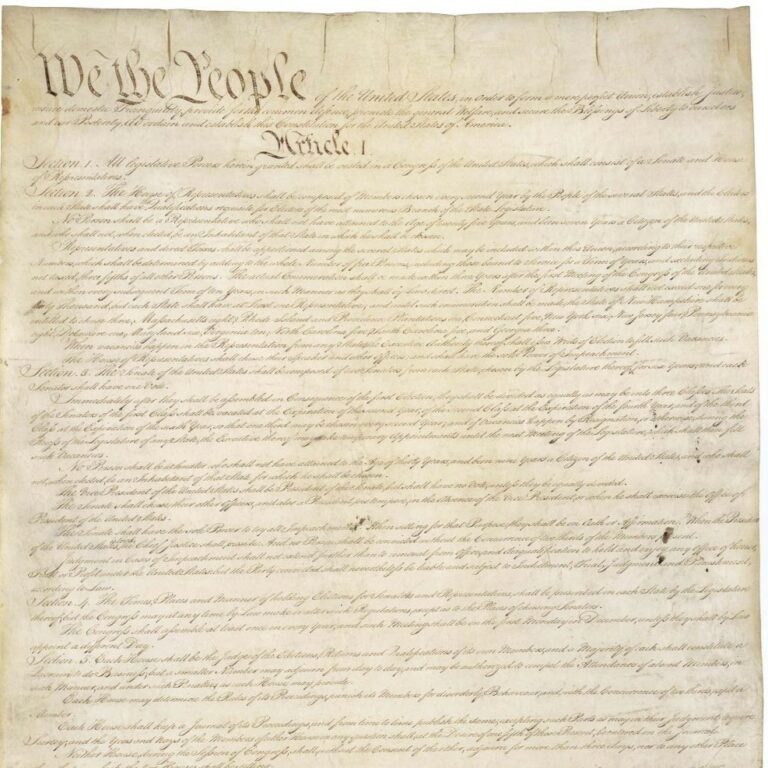 We the People of the United States, in Order to form a more perfect Union, establish Justice,
insure domestic Tranquility, provide for the common defence, promote the general Welfare, and secure the Blessings of Liberty to ourselves
and our Posterity, do ordain and establish this Constitution for the United States of America.
Article. I.
Section. 1. All legislative Powers herein granted shall be vested in a Congress of the United States, which shall consist of a Senate and House
of Representatives.
Section. 2. The House of Representatives shall be composed of Members chosen every second Year by the People of the several States, and the Electors
in each State shall have the Qualifications requisite for Electors of the most numerous Branch of the State Legislature.
No Person shall be a Representative who shall not have attained to the Age of twenty five Years, and been seven Years a Citizen of the United States,
and who shall not, when elected, be an Inhabitant of that State in which he shall be chosen.
Representatives and direct Taxes shall be apportioned among the several States which may be included within this Union, according to their respective
Numbers, which shall be determined by adding to the whole Number of free Persons, including those bound to Service for a Term of Years, and excluding Indians
not taxed, three fifths of all other Persons. The actual Enumeration shall be made within three Years after the first Meeting of the Congress of the United States,
and within every subsequent Term of ten Years, in such Manner as they shall by Law direct. The Number of Representatives shall not exceed one for every
thirty Thousand, but each State shall have at Least one Representative; and until such enumeration shall be made, the State of New Hampshire shall be
entitled to chuse three, Massachusetts eight, Rhode Island and Providence Plantations one, Connecticut five, New York six, New Jersey four, Pennsylvania
eight, Delaware one, Maryland six, Virginia ten, North Carolina five, South Carolina five, and Georgia three.
When vacancies happen in the Representation from any State, the Executive Authority thereof shall issue Writs of Election to fill such Vacancies.
The House of Representatives shall chuse their Speaker and other Officers; and shall have the sole Power of Impeachment.
Section. 3. The Senate of the United States shall be composed of two Senators from each State, chosen by the Legislature thereof, for six Years; and each
Senator shall have one Vote.
Immediately after they shall be assembled in Consequence of the first Election, they shall be divided as equally as may be into three Classes. The Seats
of the Senators of the first Class shall be vacated at the Expiration of the second Year, of the second Class at the Expiration of the fourth Year, and of the third
Class at the Expiration of the sixth Year, so that one third may be chosen every second Year; and if Vacancies happen by Resignation, or otherwise, during the
Recess of the Legislature of any State, the Executive thereof may make temporary Appointments until the next Meeting of the Legislature, which shall then fill
such Vacancies.
No Person shall be a Senator who shall not have attained to the Age of thirty Years, and been nine Years a Citizen of the United States, and who shall
not, when elected, be an Inhabitant of that State for which he shall be chosen.
The Vice President of the United States shall be President of the Senate, but shall have no Vote, unless they be equally divided.
The Senate shall chuse their other Officers, and also a President pro tempore, in the Absence of the Vice President, or when he shall exercise the Office of
President of the United States.
The Senate shall have the sole Power to try all Impeachments. When sitting for that Purpose, they shall be on Oath or Affirmation. When the President
of the United States is tried, the Chief Justice shall preside: And no Person shall be convicted without the Concurrence of two thirds of the Members present.
Judgment in Cases of Impeachment shall not extend further than to removal from Office, and disqualification to hold and enjoy any Office of honor,
Trust or Profit under the United States: but the Party convicted shall nevertheless be liable and subject to Indictment, Trial, Judgment and Punishment,
according to Law.
Section. 4. The Times, Places and Manner of holding Elections for Senators and Representatives, shall be prescribed in each State by the Legislature
thereof; but the Congress may at any time by Law make or alter such Regulations, except as to the Places of chusing Senators.
The Congress shall assemble at least once in every Year, and such Meeting shall be on the first Monday in December, unless they shall by Law
appoint a different Day.
Section. 5. Each House shall be the Judge of the Elections, Returns and Qualifications of its own Members, and a Majority of each shall constitute a
Quorum to do Business; but a smaller Number may adjourn from day to day, and may be authorized to compel the Attendance of absent Members, in
such Manner, and under such Penalties as each House may provide.
Each House may determine the Rules of its Proceedings, punish its Members for disorderly Behaviour, and, with the Concurrence of two thirds, expel a
Member.
Each House shall keep a Journal of its Proceedings, and from time to time publish the same, excepting such Parts as may in their Judgment require
Secrecy; and the Yeas and Nays of the Members of either House on any question shall, at the Desire of one fifth of those Present, be entered on the Journal.
Neither House, during the Session of Congress, shall, without the Consent of the other, adjourn for more than three days, nor to any other Place